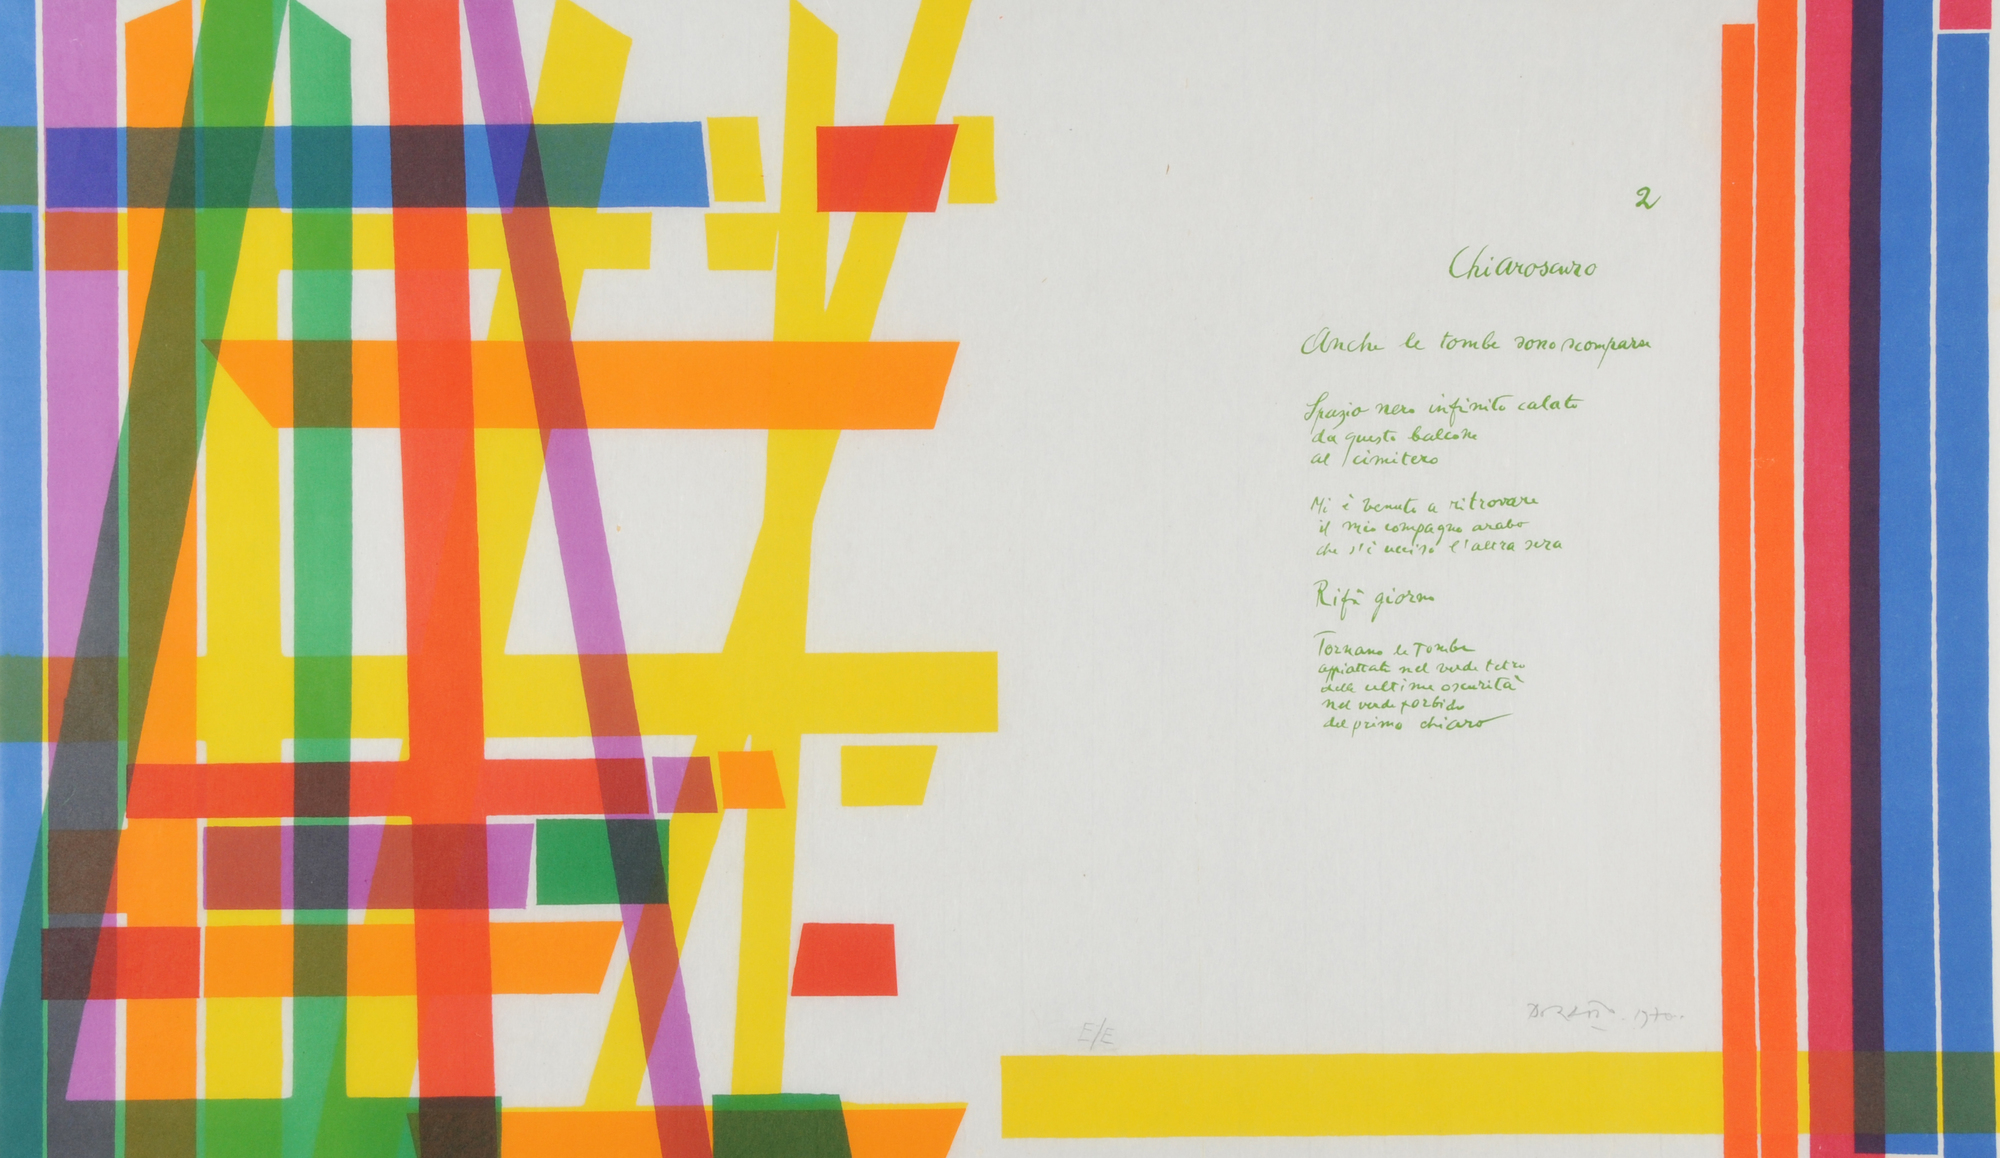 2
Chiaroscuro
Anche le tombe sono scomparse
Spazio nero infinito calato
da questo balcone
al cimitero
Mi è venuto a ritrovare
il mio compagno arabo
che s'è ucciso l'altra sera
Rifà giorno
Tornano le tombe
appiattate nel verde tetro
delle ultime oscurità
nel verde torbido
del primo chiaro
E/E
Dorazio 1970